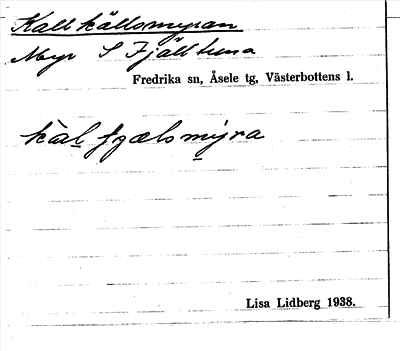 Kallkällsmyran
Myr S Fjälltuna
Fredrika sn, Åsele tg, Västerbottens l.
kal fgælsmyra
Lisa Lidberg 1938.